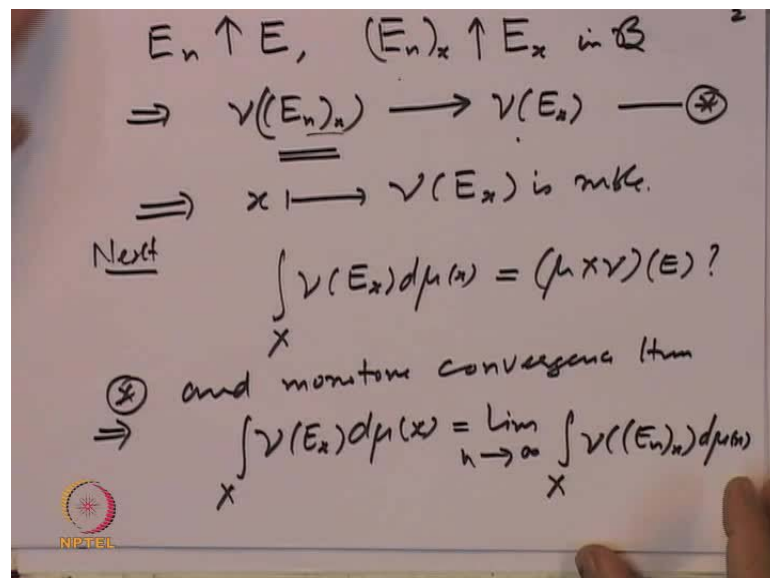 2
E_n ↑ E, (E_n)_x ↑ E_x in 𝓑
⇒ ν((E_n)_x) ⟶ ν(E_x) — ⊛
⇒ x ⟼ ν(E_x) is mble.
Next ∫_X ν(E_x) dμ(x) = (μ×ν)(E)?
⊛ and monotone convergence thm
⇒ ∫_X ν(E_x) dμ(x) = Lim_{n→∞} ∫_X ν((E_n)_x) dμ(x)
NPTEL